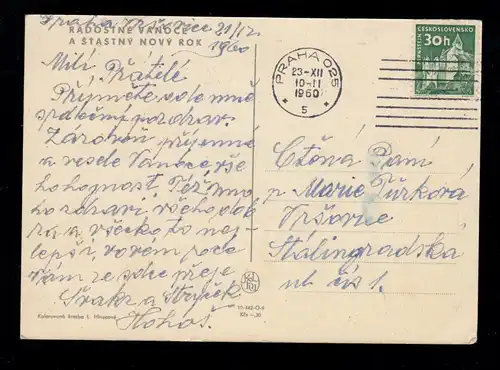 Praha Vršovice 21/12.
RADOSTNÉ VÁNOCE 1960
A ŠŤASTNÝ NOVÝ ROK
Milí Přátelé
Přijměte ode mně
srdečný pozdrav.
Zároveň příjemné
a veselé Vánoce, vše
ho hojnost. Též mno
ho zdraví všeho dob
ra a všecko to nej-
lepší, v novém roce
Vám ze srdce přeje
a Strýček
Hohoš.
Kolorovaná kresba
Kčs –,30
PRAHA 025
23-XII
10-11
1960
5
ČESKOSLOVENSKO
30h
Ctěná Paní
p. Marie Půrková
Vršovice
Stalingradská
ul. čís 1.